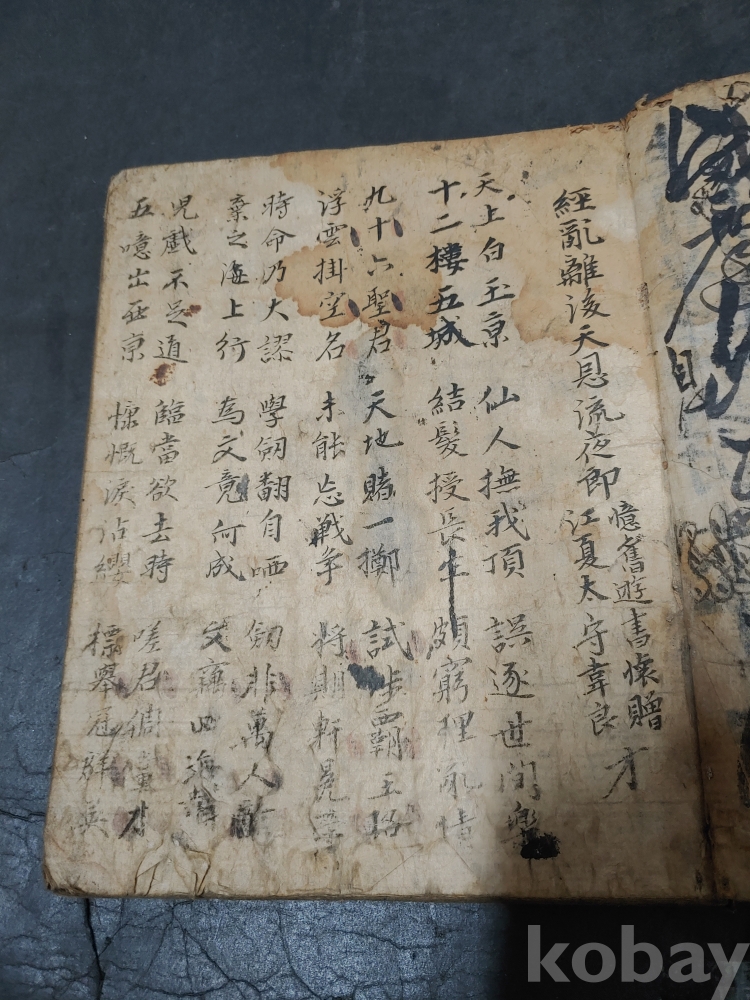 經亂離後天恩流夜郎
憶舊遊書懷贈
江夏太守韋良才
天上白玉京 仙人撫我頂 誤逐世間樂
十二樓五城 結髮授長生 頗窮理亂情
九十六聖君 天地賭一擲 試涉霸王
浮雲掛空名 未能忘戰爭 將期軒冕
時命乃大謬 學劒翻自哂 劒非萬人
棄之海上行 為文竟何成 文 四海
兒戲不足道 臨當欲去時 嗟君倜儻才
五噫出西京 慷慨淚沾纓 標舉冠群英
kobay